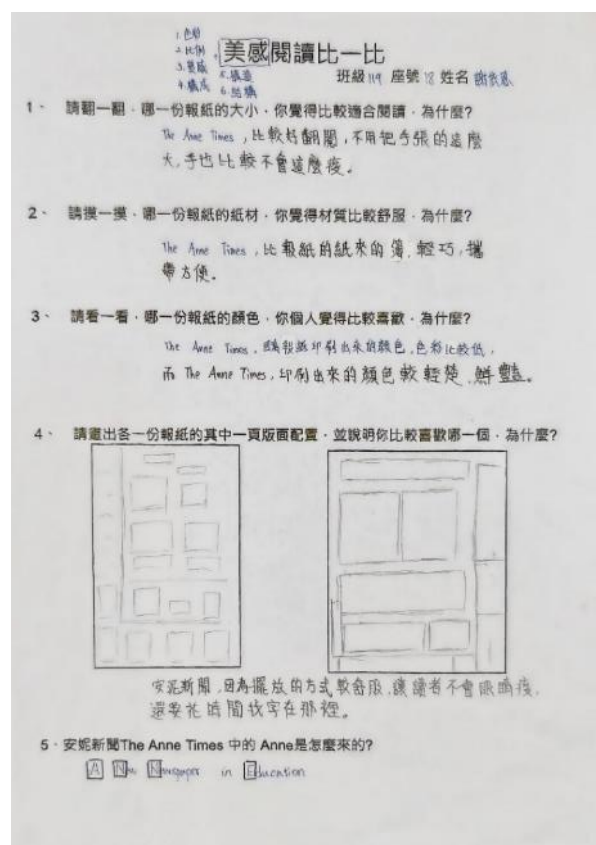 1. 色彩
2. 比例
3. 質感
4. 構成
5. 構造
6. 結構
美感閱讀比一比
班級 119 座號 12 姓名
1、 請翻一翻，哪一份報紙的大小，你覺得比較適合閱讀，為什麼?
The Anne Times，比較好翻閱，不用把手張的這麼
大，手也比較不會這麼痠。
2、 請摸一摸，哪一份報紙的紙材，你覺得材質比較舒服，為什麼?
The Anne Times，比報紙的紙來的薄、輕巧，攜
帶方便。
3、 請看一看，哪一份報紙的顏色，你個人覺得比較喜歡，為什麼?
The Anne Times，因為報紙印刷出來的顏色，色彩比較低，
而 The Anne Times，印刷出來的顏色較輕楚、鮮豔。
4、 請畫出各一份報紙的其中一頁版面配置，並說明你比較喜歡哪一個，為什麼?
安妮新聞，因為擺放的方式較舒服，讓讀者不會眼睛痠，
還要花時間找字在那裡。
5．安妮新聞The Anne Times 中的 Anne是怎麼來的?
A New Newspaper in Education